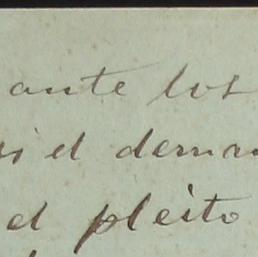 ante los
si el deman
el pleito